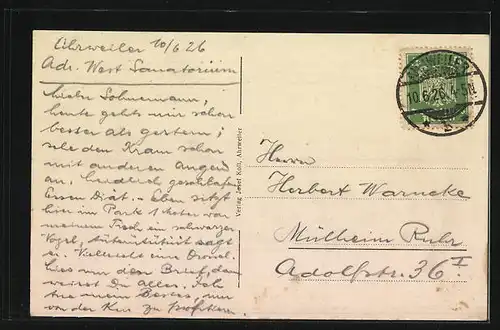 Ahrweiler 10/6 26
Adr. West Sanatorium
heute geht's mir schon
besser als gestern;
sehe den Kram schon
mit anderen Augen
an, herrlich geschlafen,
Essen Diät. - Eben sitzt
hier im Park 1 Meter von
meinem Tisch ein schwarzer
Vogel, sagt
er. Vielleicht eine Drossel.
lies nur den Brief, dann
weisst Du alles. Ich
tue mein Bestes, um
von der Kur zu profitieren.
Verlag Josef Koll, Ahrweiler
AHRWEILER
10.6.26. 4-5N
Herrn
Herbert Warncke
Mülheim Ruhr
Adolfstr. 36 I